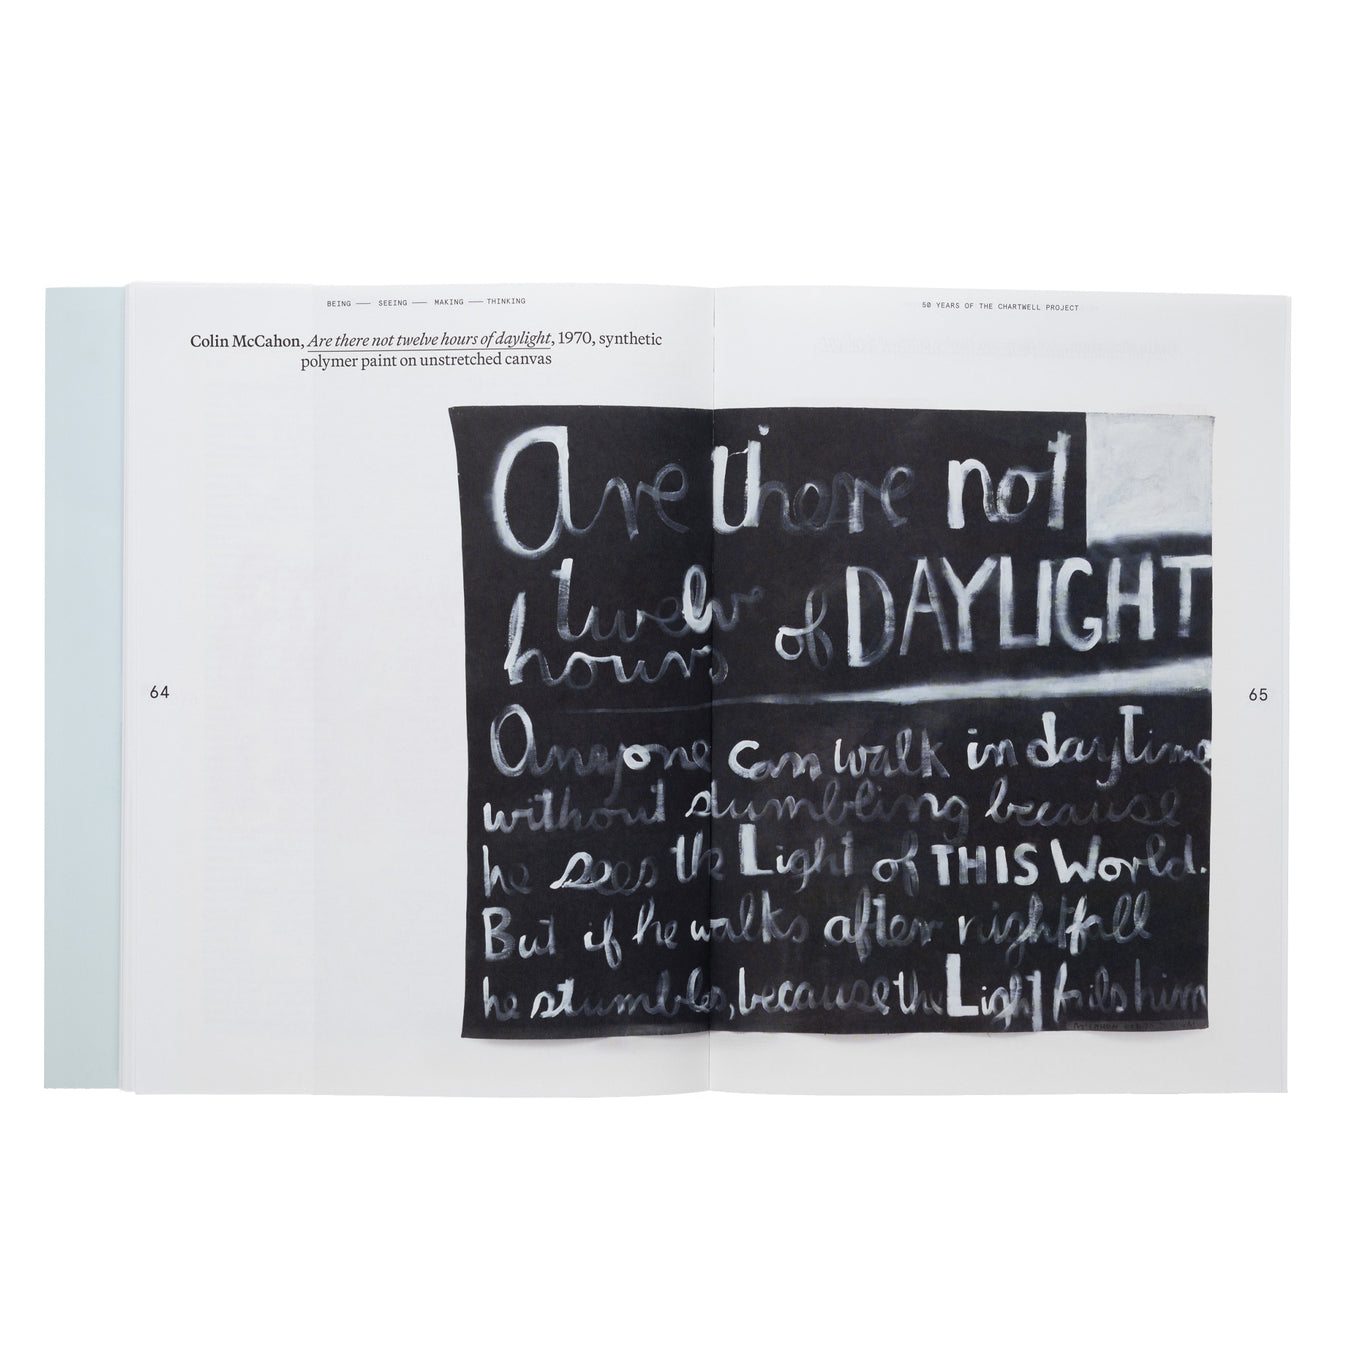 BEING — SEEING — MAKING — THINKING
50 YEARS OF THE CHARTWELL PROJECT
Colin McCahon, Are there not twelve hours of daylight, 1970, synthetic
polymer paint on unstretched canvas
Are there not
twelve
hours of DAYLIGHT
Anyone can walk in daytime
without stumbling because
he sees the Light of THIS World.
But if he walks after nightfall
he stumbles, because the Light fails him
64
65